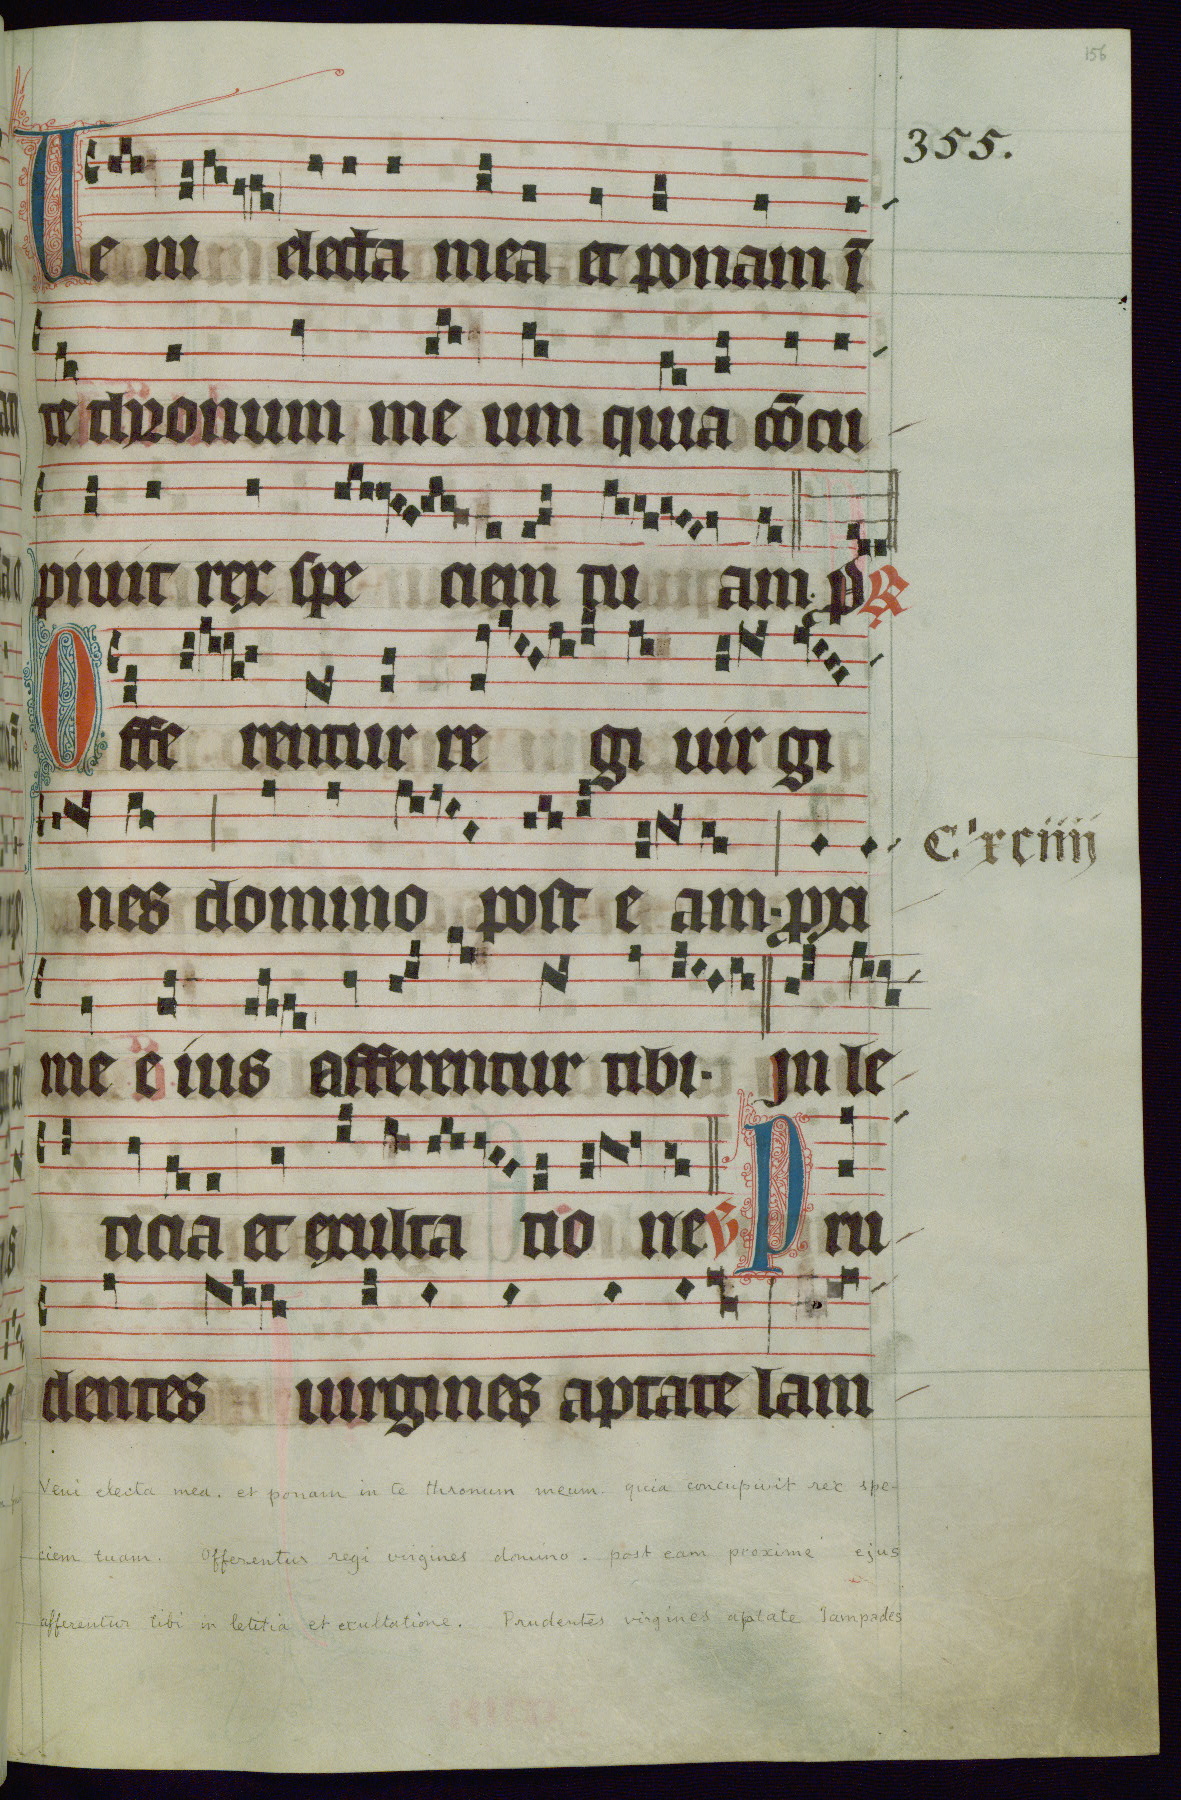 156
355.
Ve ni electa mea et ponam ī
te thronum me um quia cōcu
piuit rex spe ciem tu am. p R
Offe rentur re gi uir gi
nes domino post e am. pxi
C'xciiij
me e ius afferentur tibi. In le
ticia et exulta tio ne V Pru
dentes uirgines aptate lam
Veni electa mea. et ponam in te thronum meum. quia concupivit rex spe-
ciem tuam. Offerentur regi virgines domino. post eam proxime ejus
afferentur tibi in letitia et exultatione. Prudentes virgines aptate lampades